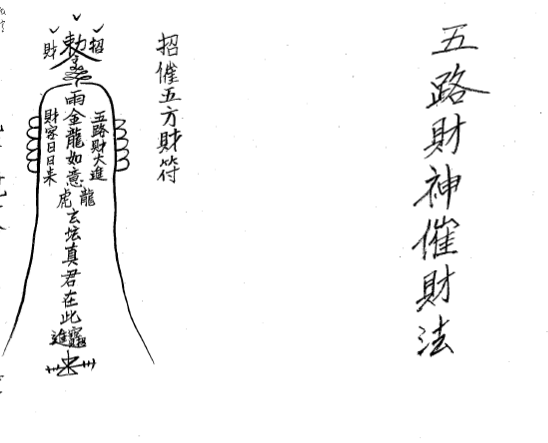 五路財神催財法
招催五方財符
招
勅令
財
雨金龍如意
五路財大進
財寶日日來
龍
虎
玄坛真君在此
進寶